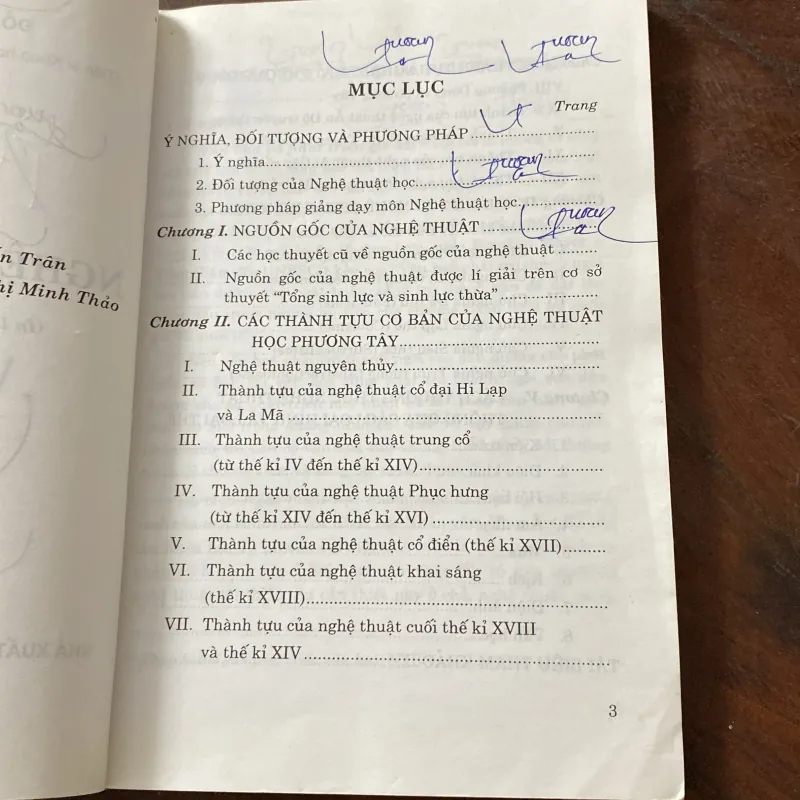 MỤC LỤC
Trang
Ý NGHĨA, ĐỐI TƯỢNG VÀ PHƯƠNG PHÁP
1. Ý nghĩa
2. Đối tượng của Nghệ thuật học
3. Phương pháp giảng dạy môn Nghệ thuật học
Chương I. NGUỒN GỐC CỦA NGHỆ THUẬT
I. Các học thuyết cũ về nguồn gốc của nghệ thuật
II. Nguồn gốc của nghệ thuật được lí giải trên cơ sở
thuyết “Tổng sinh lực và sinh lực thừa”
Chương II. CÁC THÀNH TỰU CƠ BẢN CỦA NGHỆ THUẬT
HỌC PHƯƠNG TÂY
I. Nghệ thuật nguyên thủy
II. Thành tựu của nghệ thuật cổ đại Hi Lạp
và La Mã
III. Thành tựu của nghệ thuật trung cổ
(từ thế kỉ IV đến thế kỉ XIV)
IV. Thành tựu của nghệ thuật Phục hưng
(từ thế kỉ XIV đến thế kỉ XVI)
V. Thành tựu của nghệ thuật cổ điển (thế kỉ XVII)
VI. Thành tựu của nghệ thuật khai sáng
(thế kỉ XVIII)
VII. Thành tựu của nghệ thuật cuối thế kỉ XVIII
và thế kỉ XIV
3
Trân
Minh Thảo